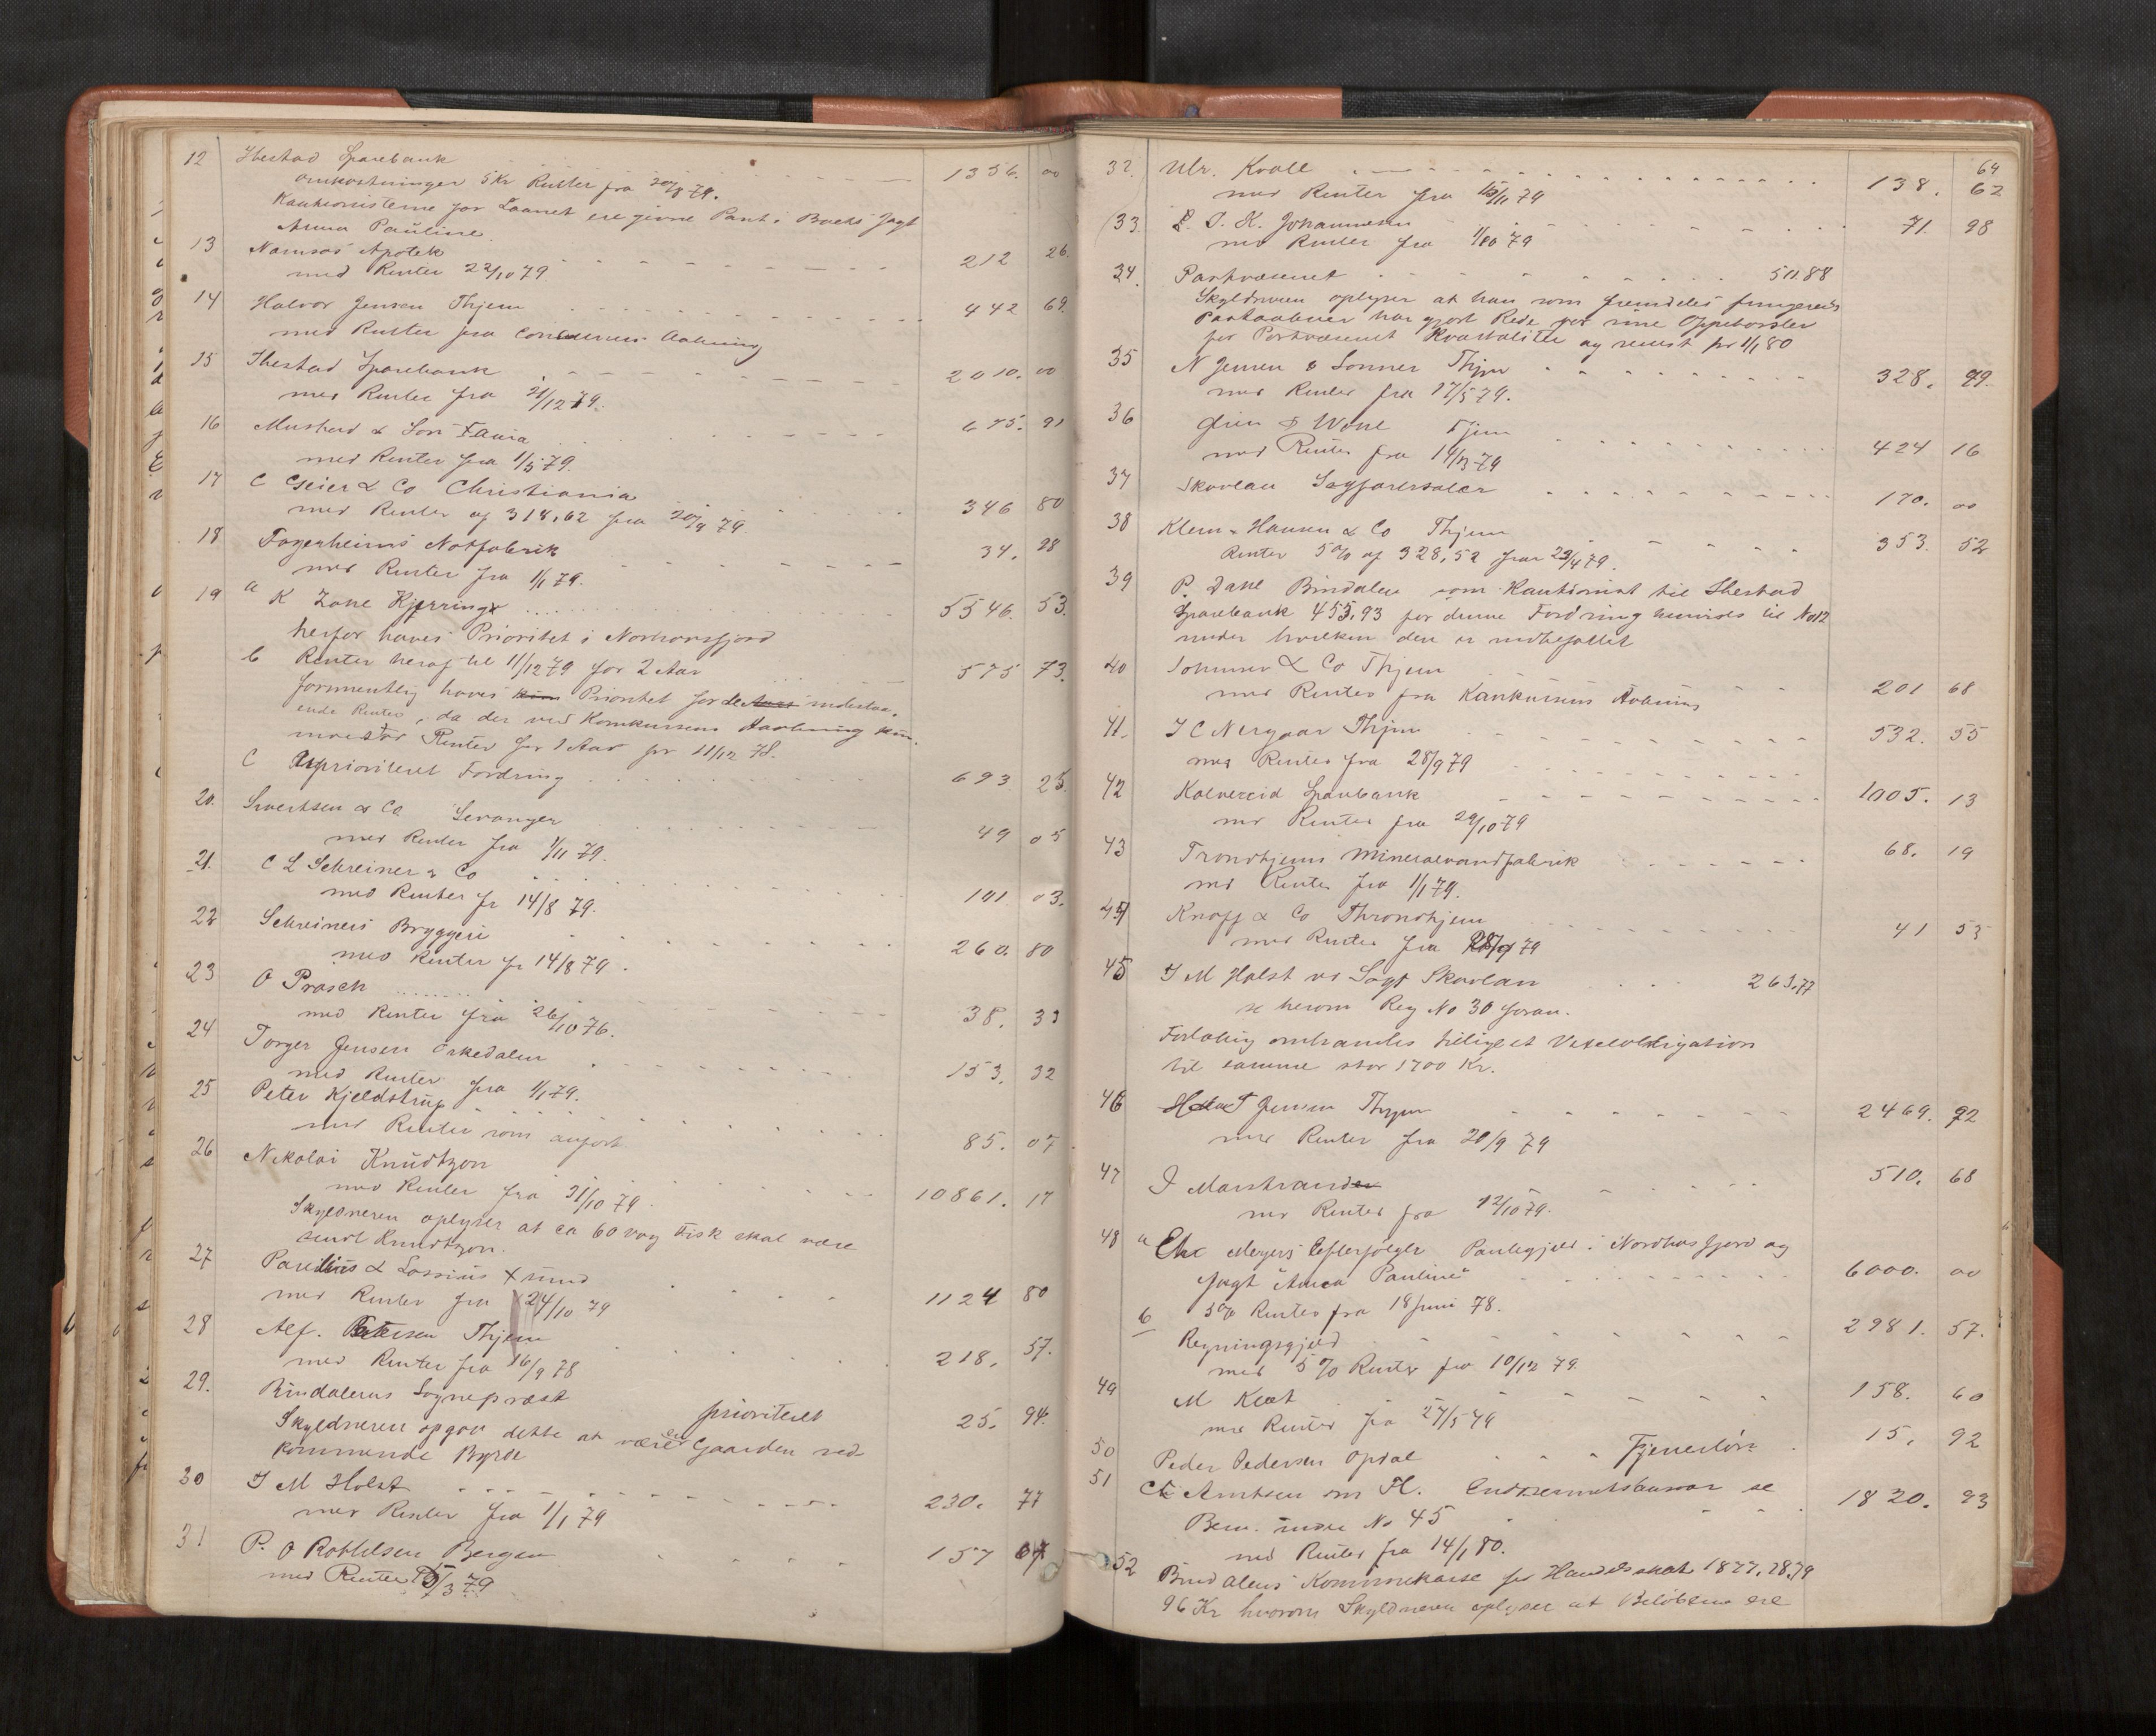 12 Ibestad Sparebank 1356. 00
omkostninger 5 Kr Renter fra 20/8 79.
Kautionisterne for Laanet ere givne Pant i Baets Jagt
Anna Pauline
13 Namsos Apotek 212 26.
med Renter 22/10 79
14 Halvor Jensen Thjem 442 69.
med Renter fra Concursens Aabning
15 Ibestad Sparebank 2010. 00
med Renter fra 21/12 79.
16 Mustad & Søn 675. 91
med Renter fra 1/5 79.
17 C Geier & Co Christiania 346 80
med Renter af 314,62 fra 20/9 79
18 Fagerheims Notfabrik 34. 28
med Renter fra 1/1 79.
19 a K Zahl Kjerringø 5546. 53.
herfor haves Prioritet i Nordhorsfjord
b Renter heraf til 11/12 79 for 2 Aar 575 73.
formentlig haves Prioritet for de indestaa-
ende Renter, da der ved Konkursens Aabning kun
indestod Renter for 1 Aar pr 11/12 78.
C Uprioriteret Fordring 693 25.
20. Sivertsen & Co Levanger 49 05
med Renter fra 1/11 79.
21. C L Schreiner & Co 101 03.
med Renter fr 14/8 79.
22 Schreiners Bryggeri 260. 80
med Renter fr 14/8 79.
23 O Prasch 38. 33
med Renter fra 26/10 76.
24 Torger Jensen Orkedalen 153. 32
med Renter fra 1/1 79.
25 Peter Kjeldstrup 85. 07
med Renter som anført
26 Nikolai Knudtzon 10861. 17
med Renter fra 31/10 79
Skyldneren oplyser at ca 60 vog Fisk skal være
sendt Knudtzon.
27 Parelius & Lossius Xsund 1124 80
med Renter fra 24/10 79
28 Alf. Petersen Thjem 218. 57.
med Renter fra 16/9 78
29. Bindalens Sogneprest prioriteret 25. 94.
Skyldneren opgav dette at være en Gaarden ved-
kommende Byrde
30 J M Holst 230. 77
med Renter fra 1/1 79
31 P. O Robbelsen Bergen 157 67
med Renter 15/3 79
64
32. Ulr. Kvale 138. 62
med Renter fra 15/11 79
33. J. K. Johannesen 71. 98
med Renter fra 1/10 79
34. Postvæsenet 511.88
Skyldneren oplyser at han som fremdeles fungerende
Postaabner har gjort Rede for sine Oppebørsler
for Postvæsenet kvartaliter og senest pr 1/1 80
35 N Jensen & Sønner Thjem 328. 99.
med Renter fra 17/5 79.
36 Grien & Wohl Tjem 424 16
med Renter fra 14/3 79
37 Skavlan Sagførersalær 170. 00
38 Klem Hansen & Co Thjem 353. 52
Renter 5% af 328,52 fra 23/4 79.
39 P. Dahl Bindalen som Kautionist til Ibestad
Sparebank 455,93 for denne Fordring henvises til No 12
under hvilken den er indbefattet
40 Sommer & Co Thjem 201 68
med Renter fra Konkursens Aabning
41. J C Nergaar Thjem 532. 55
med Renter fra 28/9 79
42 Kolvereid Sparebank 1005. 13
med Renter fra 29/10 79
43 Trondhjems Mineralvandfabrik 68. 19
med Renter fra 1/1 79.
44 Knoff & Co Throndhjem 41 53
med Renter fra 28/9 79
45 J M Holst ved Sagf Skavlan 263,77
se herom Reg No 30 foran.
Forløbig omhandles tillige et Vexelobligation
til samme stor 1700 Kr.
46 Jensen Thjem 2469. 92
med Renter fra 20/9 79
47 J Marstrander 510. 68
med Renter fra 12/10 79.
48 a Chr Meyers Efterfølger Pantegjeld i Nordhusfjord og
Jagt "Anna Pauline" 6000. 00
5% Renter fra 18 Juni 78.
b Regningsgjeld 2981. 57.
med 5% Renter fra 10/12 79.
49 M Klæt 158. 60
med Renter fra 27/5 79
50 Peder Pedersen Opdal Tjenerløn 15. 92
51 Arntsen om Fl. Endossementsansvar se 1820. 93
Bem. under No 45
med Renter fra 14/1 80.
52 Bindalens Kommunekasse for Handelsskat 1877, 78, 79
96 Kr hvorom Skyldneren oplyser at Beløbene ere